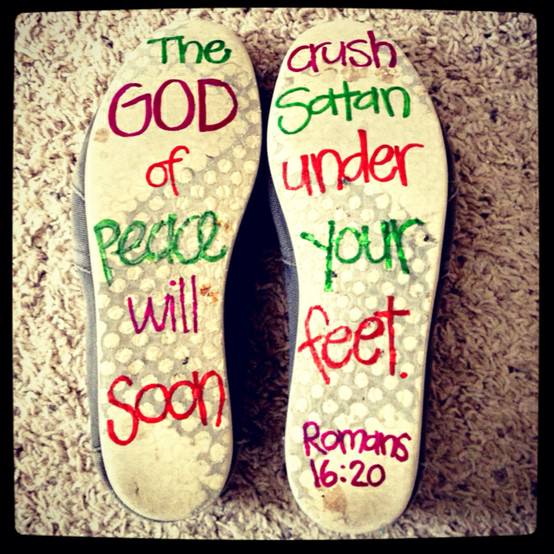 The
GOD
of
peace
will
soon
crush
Satan
under
your
feet.
Romans
16:20